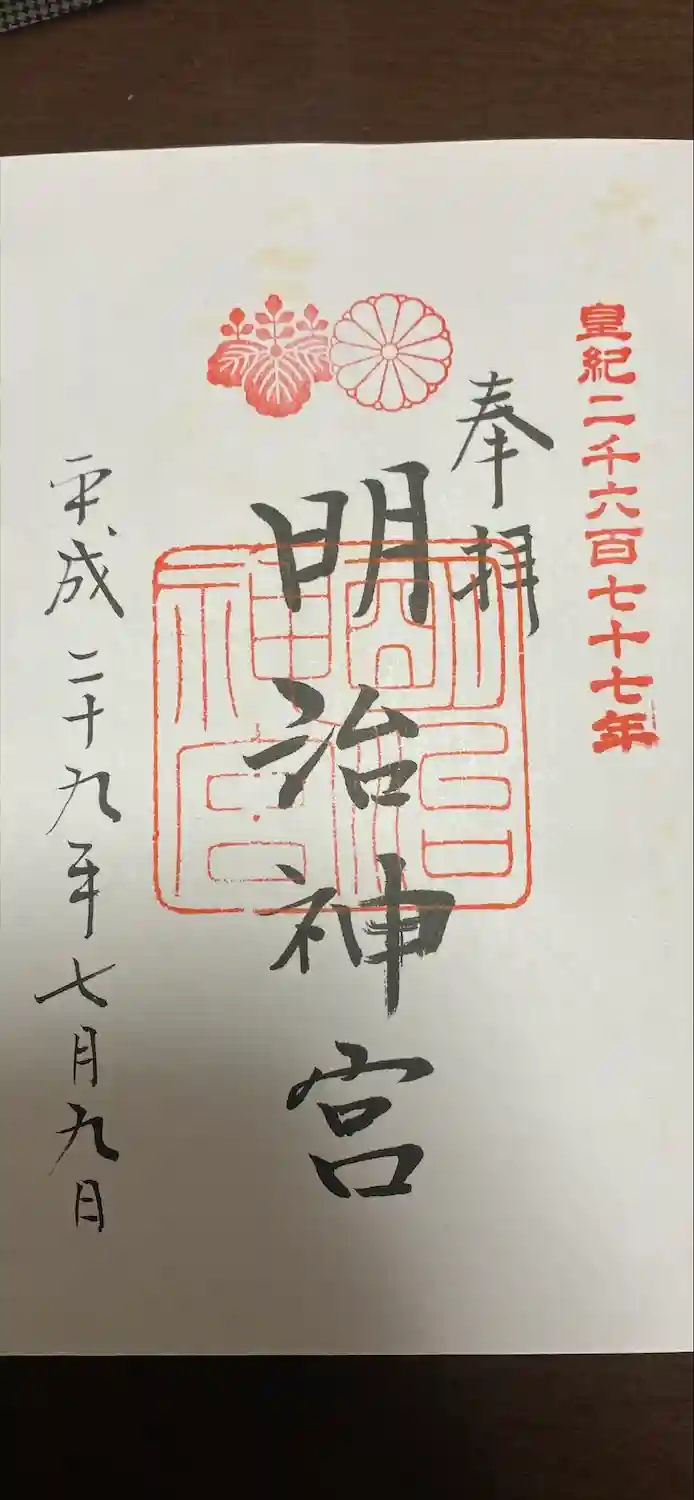 皇紀二千六百七十七年
奉拝
明治神宮
明治神宮
平成二十九年七月九日